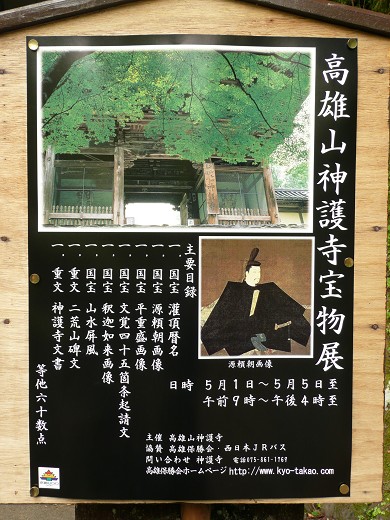 高雄山神護寺宝物展
主要目録
一、国宝 灌頂暦名
一、国宝 源頼朝画像
一、国宝 平重盛画像
一、国宝 文覚四十五箇条起請文
一、国宝 釈迦如来画像
一、国宝 山水屏風
一、重文 二荒山碑文
一、重文 神護寺文書
等他六十数点
源頼朝画像
日時 5月1日～5月5日至
午前9時～午後4時至
主催 高雄山神護寺
協賛 高雄保勝会・西日本JRバス
問い合わせ 神護寺 電話075-861-1769
高雄保勝会ホームページ http://www.kyo-takao.com